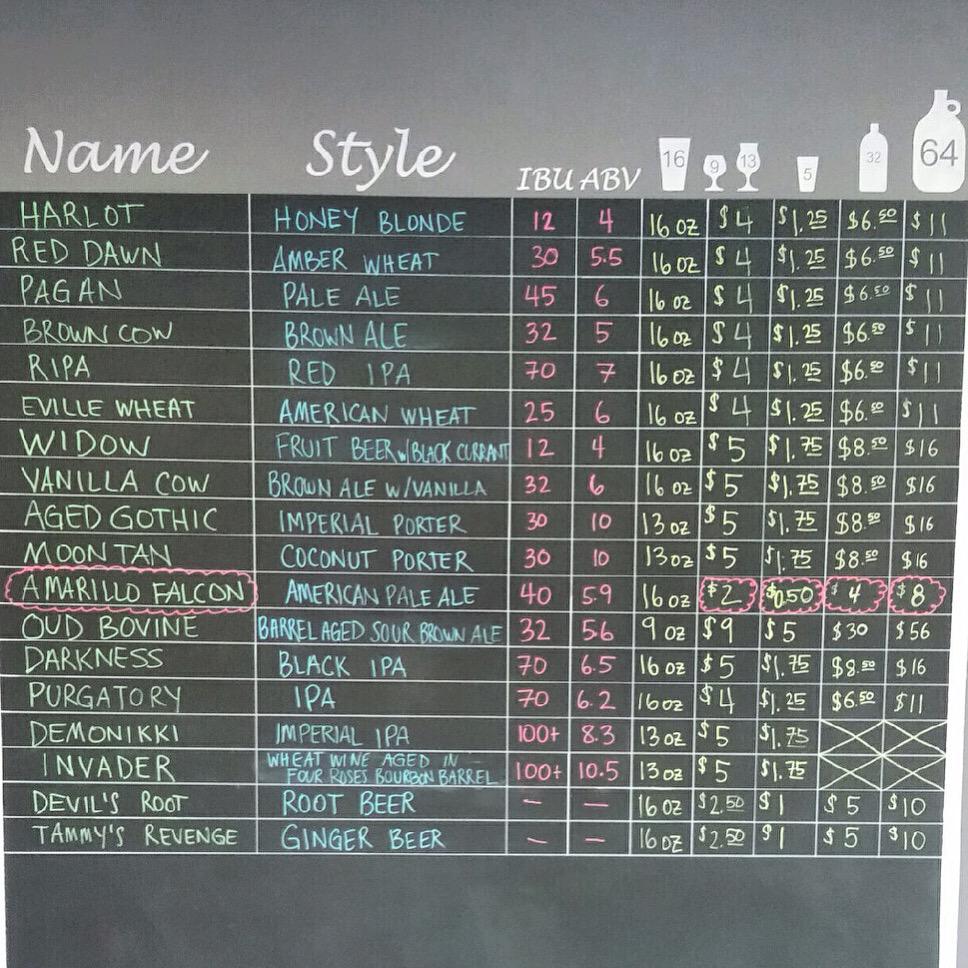 Name Style IBU ABV 16 9 13 5 32 64
HARLOT HONEY BLONDE 12 4 16 oz $4 $1.25 $6.50 $11
RED DAWN AMBER WHEAT 30 5.5 16 oz $4 $1.25 $6.50 $11
PAGAN PALE ALE 45 6 16 oz $4 $1.25 $6.50 $11
BROWN COW BROWN ALE 32 5 16 oz $4 $1.25 $6.50 $11
RIPA RED IPA 70 7 16 oz $4 $1.25 $6.50 $11
EVILLE WHEAT AMERICAN WHEAT 25 6 16 oz $4 $1.25 $6.50 $11
WIDOW FRUIT BEER w/BLACK CURRANT 12 4 16 oz $5 $1.75 $8.50 $16
VANILLA COW BROWN ALE W/VANILLA 32 6 16 oz $5 $1.75 $8.50 $16
AGED GOTHIC IMPERIAL PORTER 30 10 13 oz $5 $1.75 $8.50 $16
MOONTAN COCONUT PORTER 30 10 13 oz $5 $1.75 $8.50 $16
AMARILLO FALCON AMERICAN PALE ALE 40 5.9 16 oz $2 $0.50 $4 $8
OUD BOVINE BARREL AGED SOUR BROWN ALE 32 5.6 9 oz $9 $5 $30 $56
DARKNESS BLACK IPA 70 6.5 16 oz $5 $1.75 $8.50 $16
PURGATORY IPA 70 6.2 16 oz $4 $1.25 $6.50 $11
DEMONIKKI IMPERIAL IPA 100+ 8.3 13 oz $5 $1.75
INVADER WHEAT WINE AGED IN
FOUR ROSES BOURBON BARREL 100+ 10.5 13 oz $5 $1.75
DEVIL'S ROOT ROOT BEER — — 16 oz $2.50 $1 $5 $10
TAMMY'S REVENGE GINGER BEER — — 16 oz $2.50 $1 $5 $10